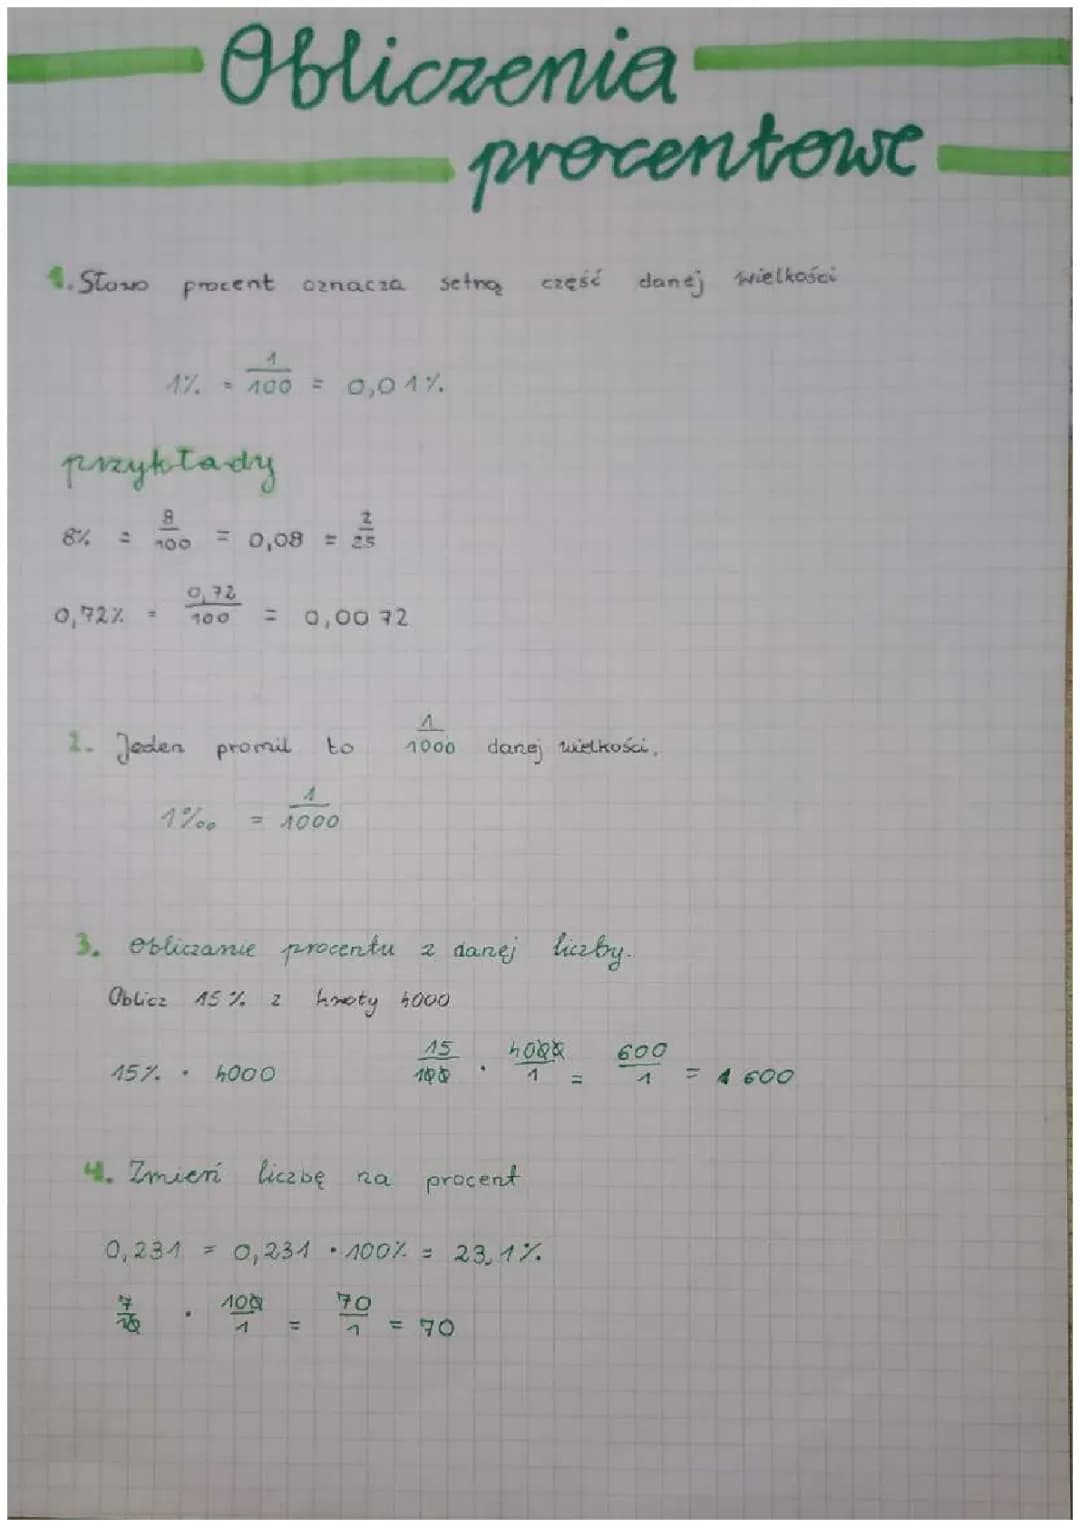 Obliczenia
procentowe
1. Słowo procent oznacza setną część danej wielkości
1% = 1/100 = 0,01%
przykłady
8% = 8/100 = 0,08 = 2/25
0,72% = 0,72/100 = 0,0072
2. Jeden promil to 1/1000 danej wielkości.
1‰ = 1/1000
3. Obliczanie procentu z danej liczby.
Oblicz 15% z kwoty 4000
15% · 4000 15/100 · 4000/1 = 600/1 = 600
4. Zmień liczbę na procent
0,231 = 0,231 · 100% = 23,1%
7/10 · 100/1 = 70/1 = 70